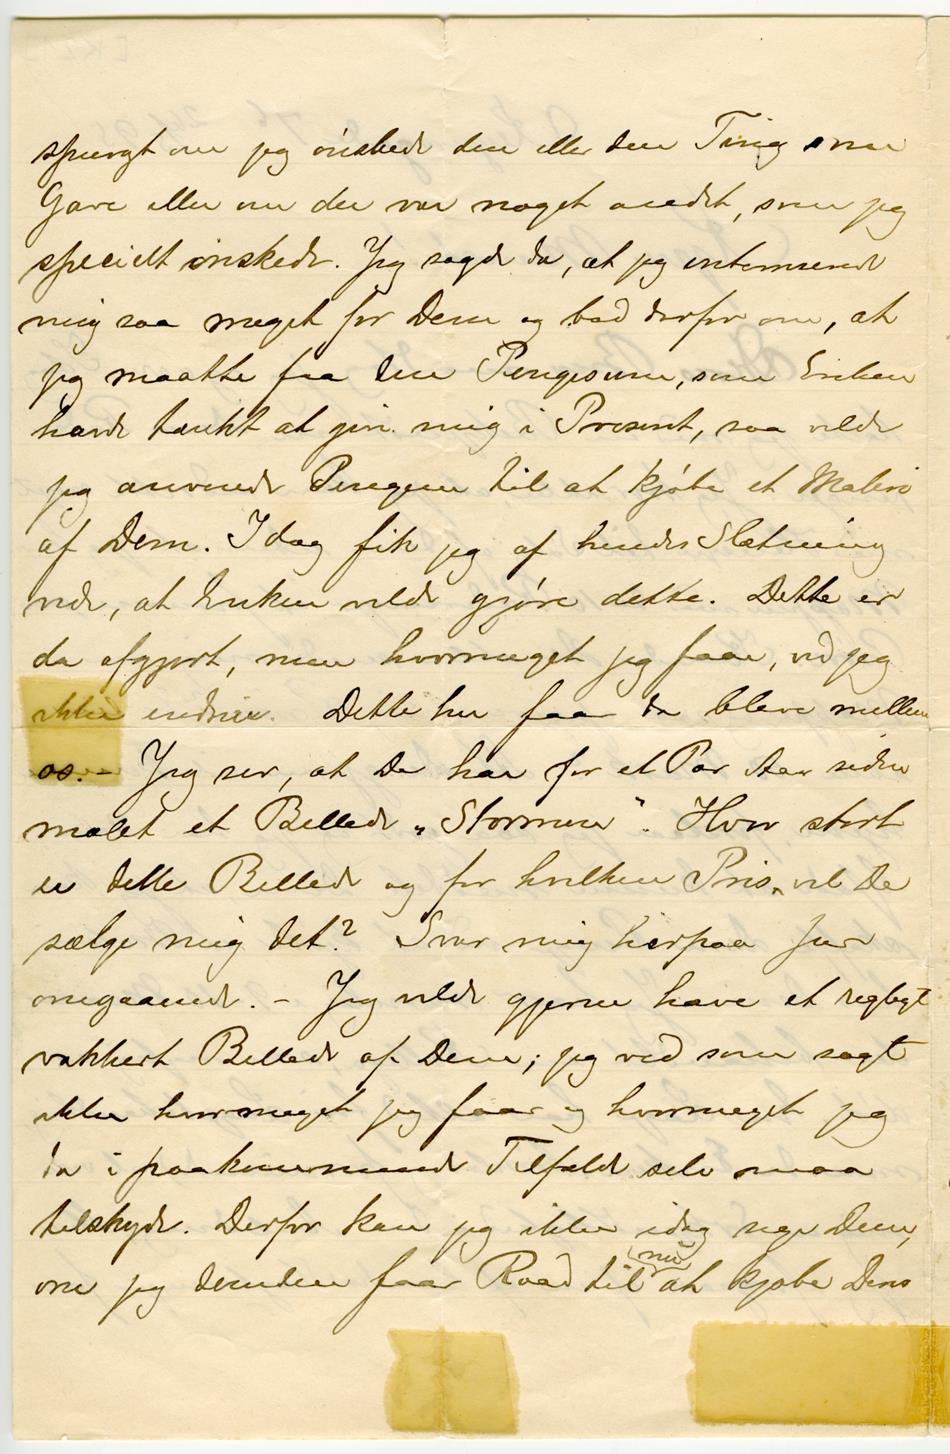 spurgt om jeg ønskede den eller den Ting som
Gave eller om der var noget andet, som jeg
specielt ønskede. Jeg sagde da, at jeg interesserede
mig saa meget for Dem og bad derfor om, at
jeg maatte faa den Pengesum, som Enken
havde tænkt at give mig i Present, saa vilde
jeg anvende Pengene til at kjøbe et Maleri
af Dem. Idag fik jeg af hendes Slætning
vide, at Enken vilde gjøre dette. Dette er
da afgjort, men hvormeget jeg faar, ved jeg
ikke endnu. Dette her faar da bleve mellem
os. – Jeg ser, at De har for et Par Aar siden
malet et Billede „Stormen". Hvor stort
er dette Billede og for hvilken Pris vil De
sælge mig det? Svar mig herpaa
omgaaende. – Jeg vilde gjerne have et rigtigt
vakkert Billede af Dem; jeg ved som sagt
ikke hvormeget jeg faar og hvormeget jeg
da i paakommende Tilfælde selv maa
tilskyde. Derfor kan jeg ikke idag sige Dem,
om jeg desuden faar Raad til nu at kjøbe Deres